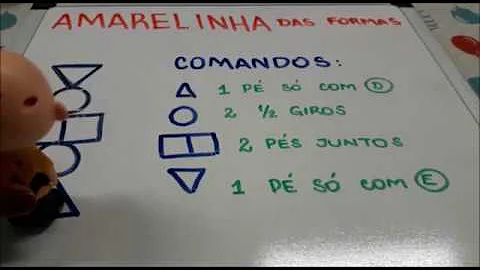 AMARELINHA DAS FORMAS
COMANDOS:
1 PÉ SÓ COM D
2 1/2 GIROS
2 PÉS JUNTOS
1 PÉ SÓ COM E